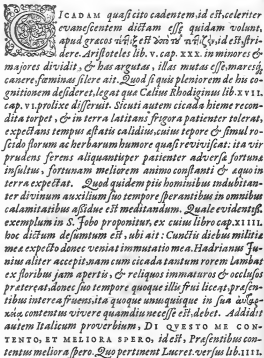 CICADAM quasi cito cadentem, id est, celeriter
evanescentem dictam esse quidam volunt,
apud græcos id est stri-
dere. Aristoteles lib. v. cap. xxx. in minores &
majores dividit, & has argutas, illas mutas esse, mares
canere, fæminas silere ait. Quod si quis pleniorem de hiis co-
gnitionem desideret, legat quæ Cælius Rhodiginus lib. XVII.
cap. VI. prolixe disseruit. Sicuti autem cicada hieme recon-
dita torpet, & in terra latitans frigora patienter tolerat,
expectans tempus æstatis calidius, cuius tepore & simul ro-
scido florum ac herbarum humore quasi reviviscat: ita vir
prudens ferens aliquantuper patienter adversa fortunæ
insultus, fortunam meliorem animo constanti & æquo in
terra expectat. Quod quidem piu hominibus indubitan-
ter divinum auxilium suo tempore sperantibus in omnibus
calamitatibus assidue est meditandum. Quale evidentiss.
exemplum in S. Jobo proponitur, ex cuius libro cap. XIIII.
hoc dictum desumtum est, ubi ait: Cunctis diebus militiæ
meæ expecto donec veniat immutatio mea. Hadrianus Ju-
nius aliter accepit, nam cum cicada tantum rorem lambat
ex floribus jam apertis, & reliquos immaturos & occlusos
prætereat, donec suo tempore quoque illis frui liceat, præsen-
tibus interea fruens, ita quoque unusquisque in sua
contentus vivere quamdiu necesse est, debet. Addidit
autem Italicum proverbium, DI QUESTO ME CON-
TENTO, ET MELIORA SPERO, id est, Præsentibus con-
tentus meliora spero. Quo pertinent Lucret. versus lib. IIII.